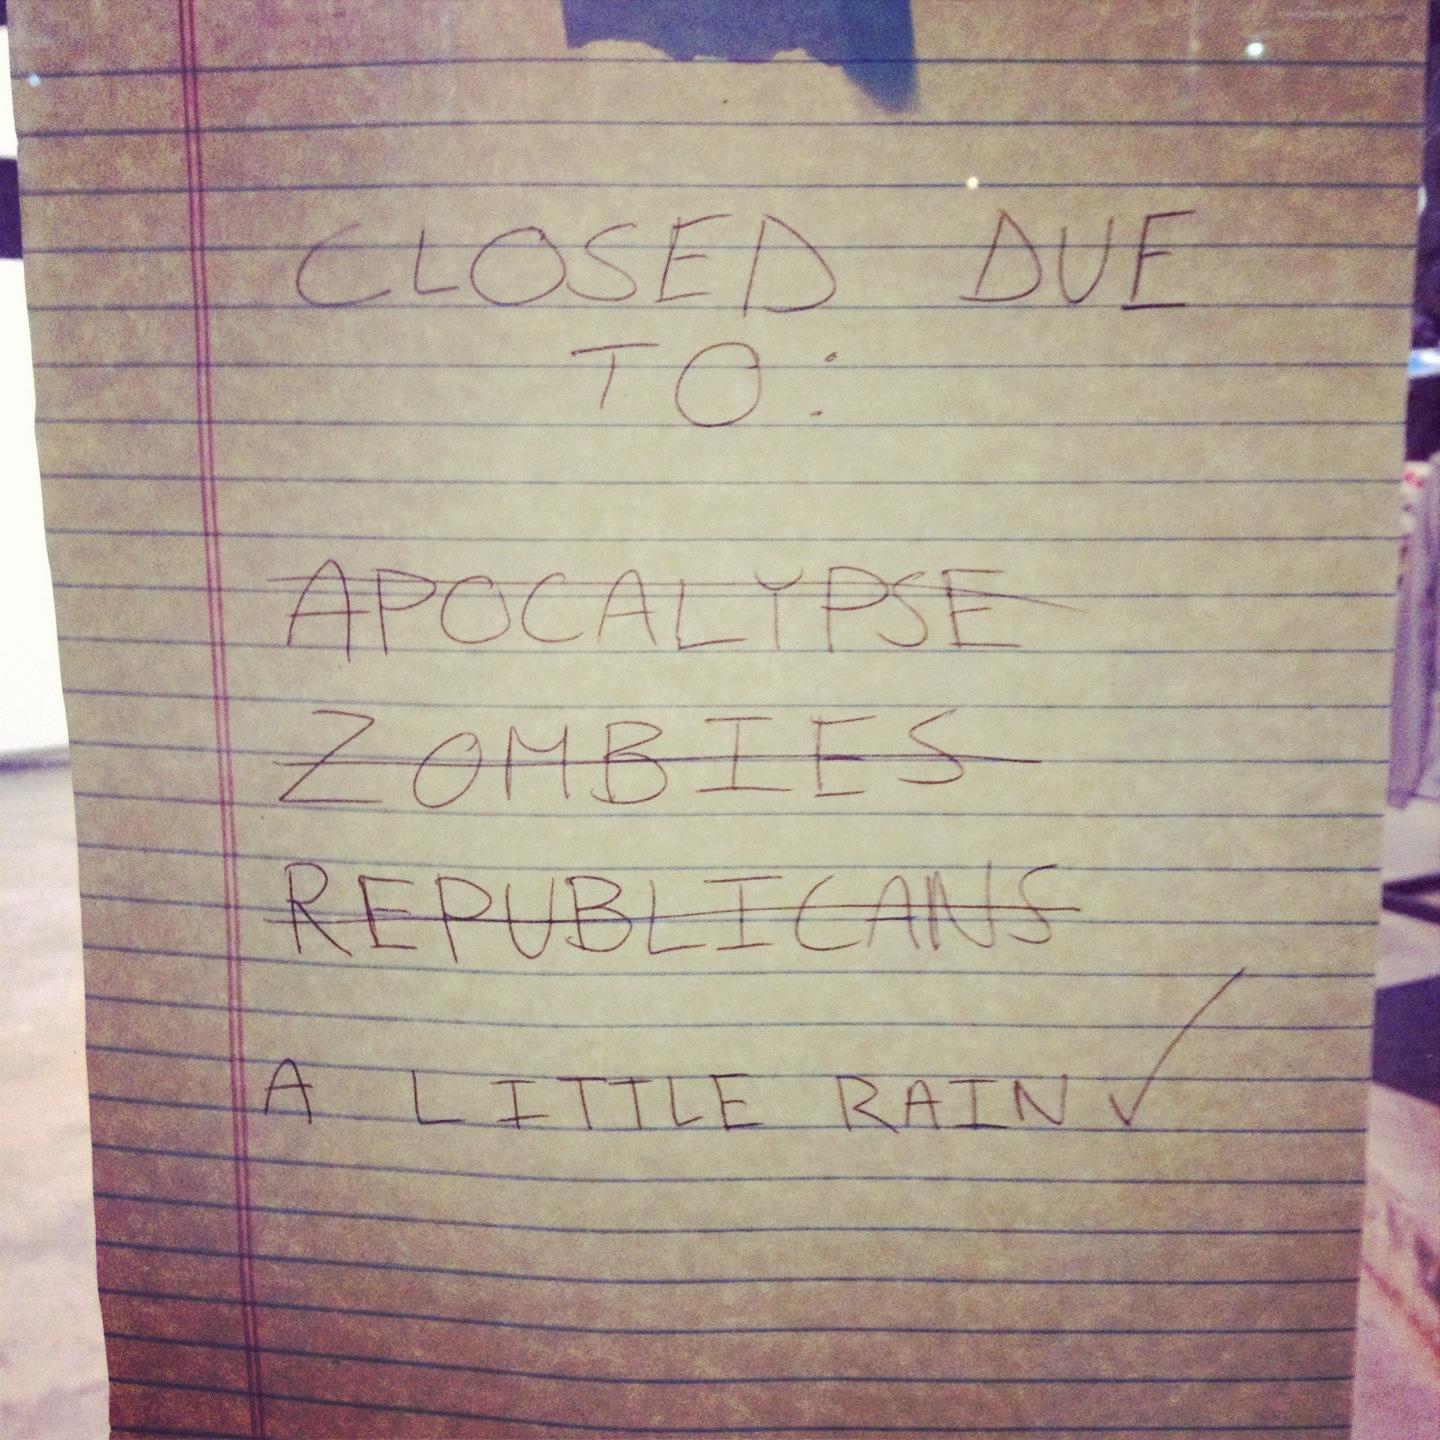 CLOSED DUE
TO:
APOCALYPSE
ZOMBIES
REPUBLICANS
A LITTLE RAIN ✓